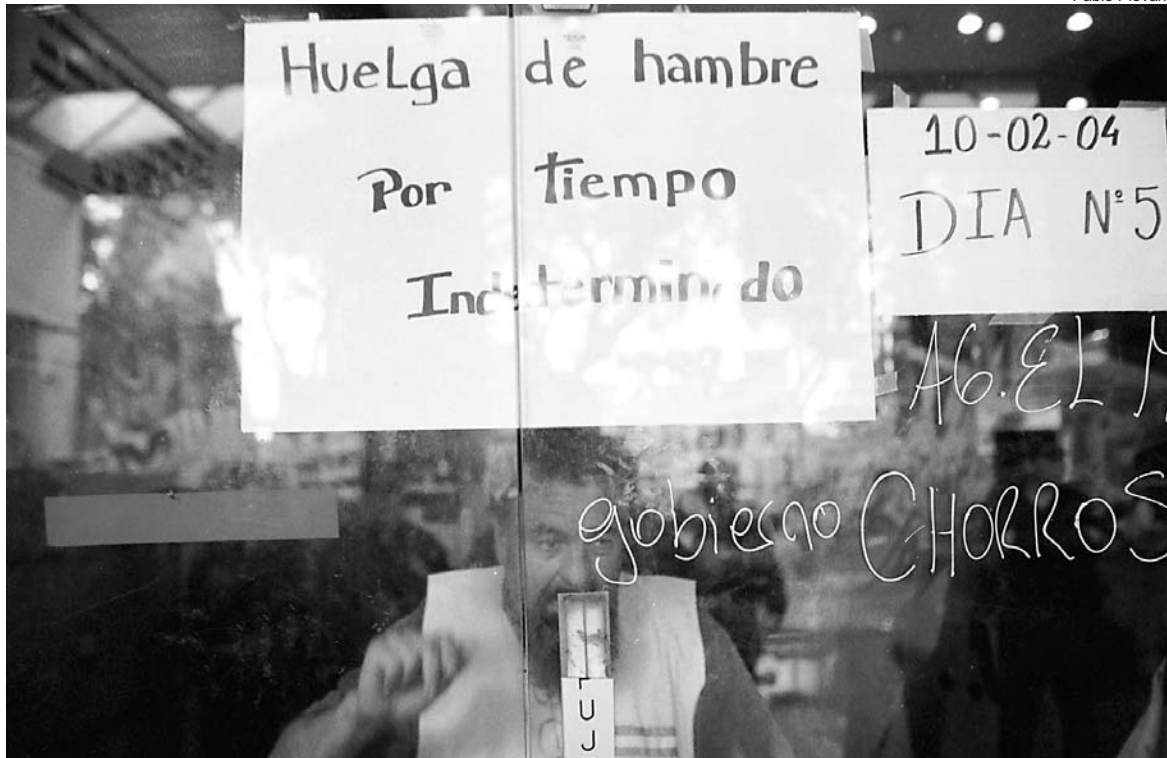 Huelga de hambre
Por tiempo
Indeterminado
10-02-04
DIA N°5
AG.EL
gobierno CHORROS
UJ